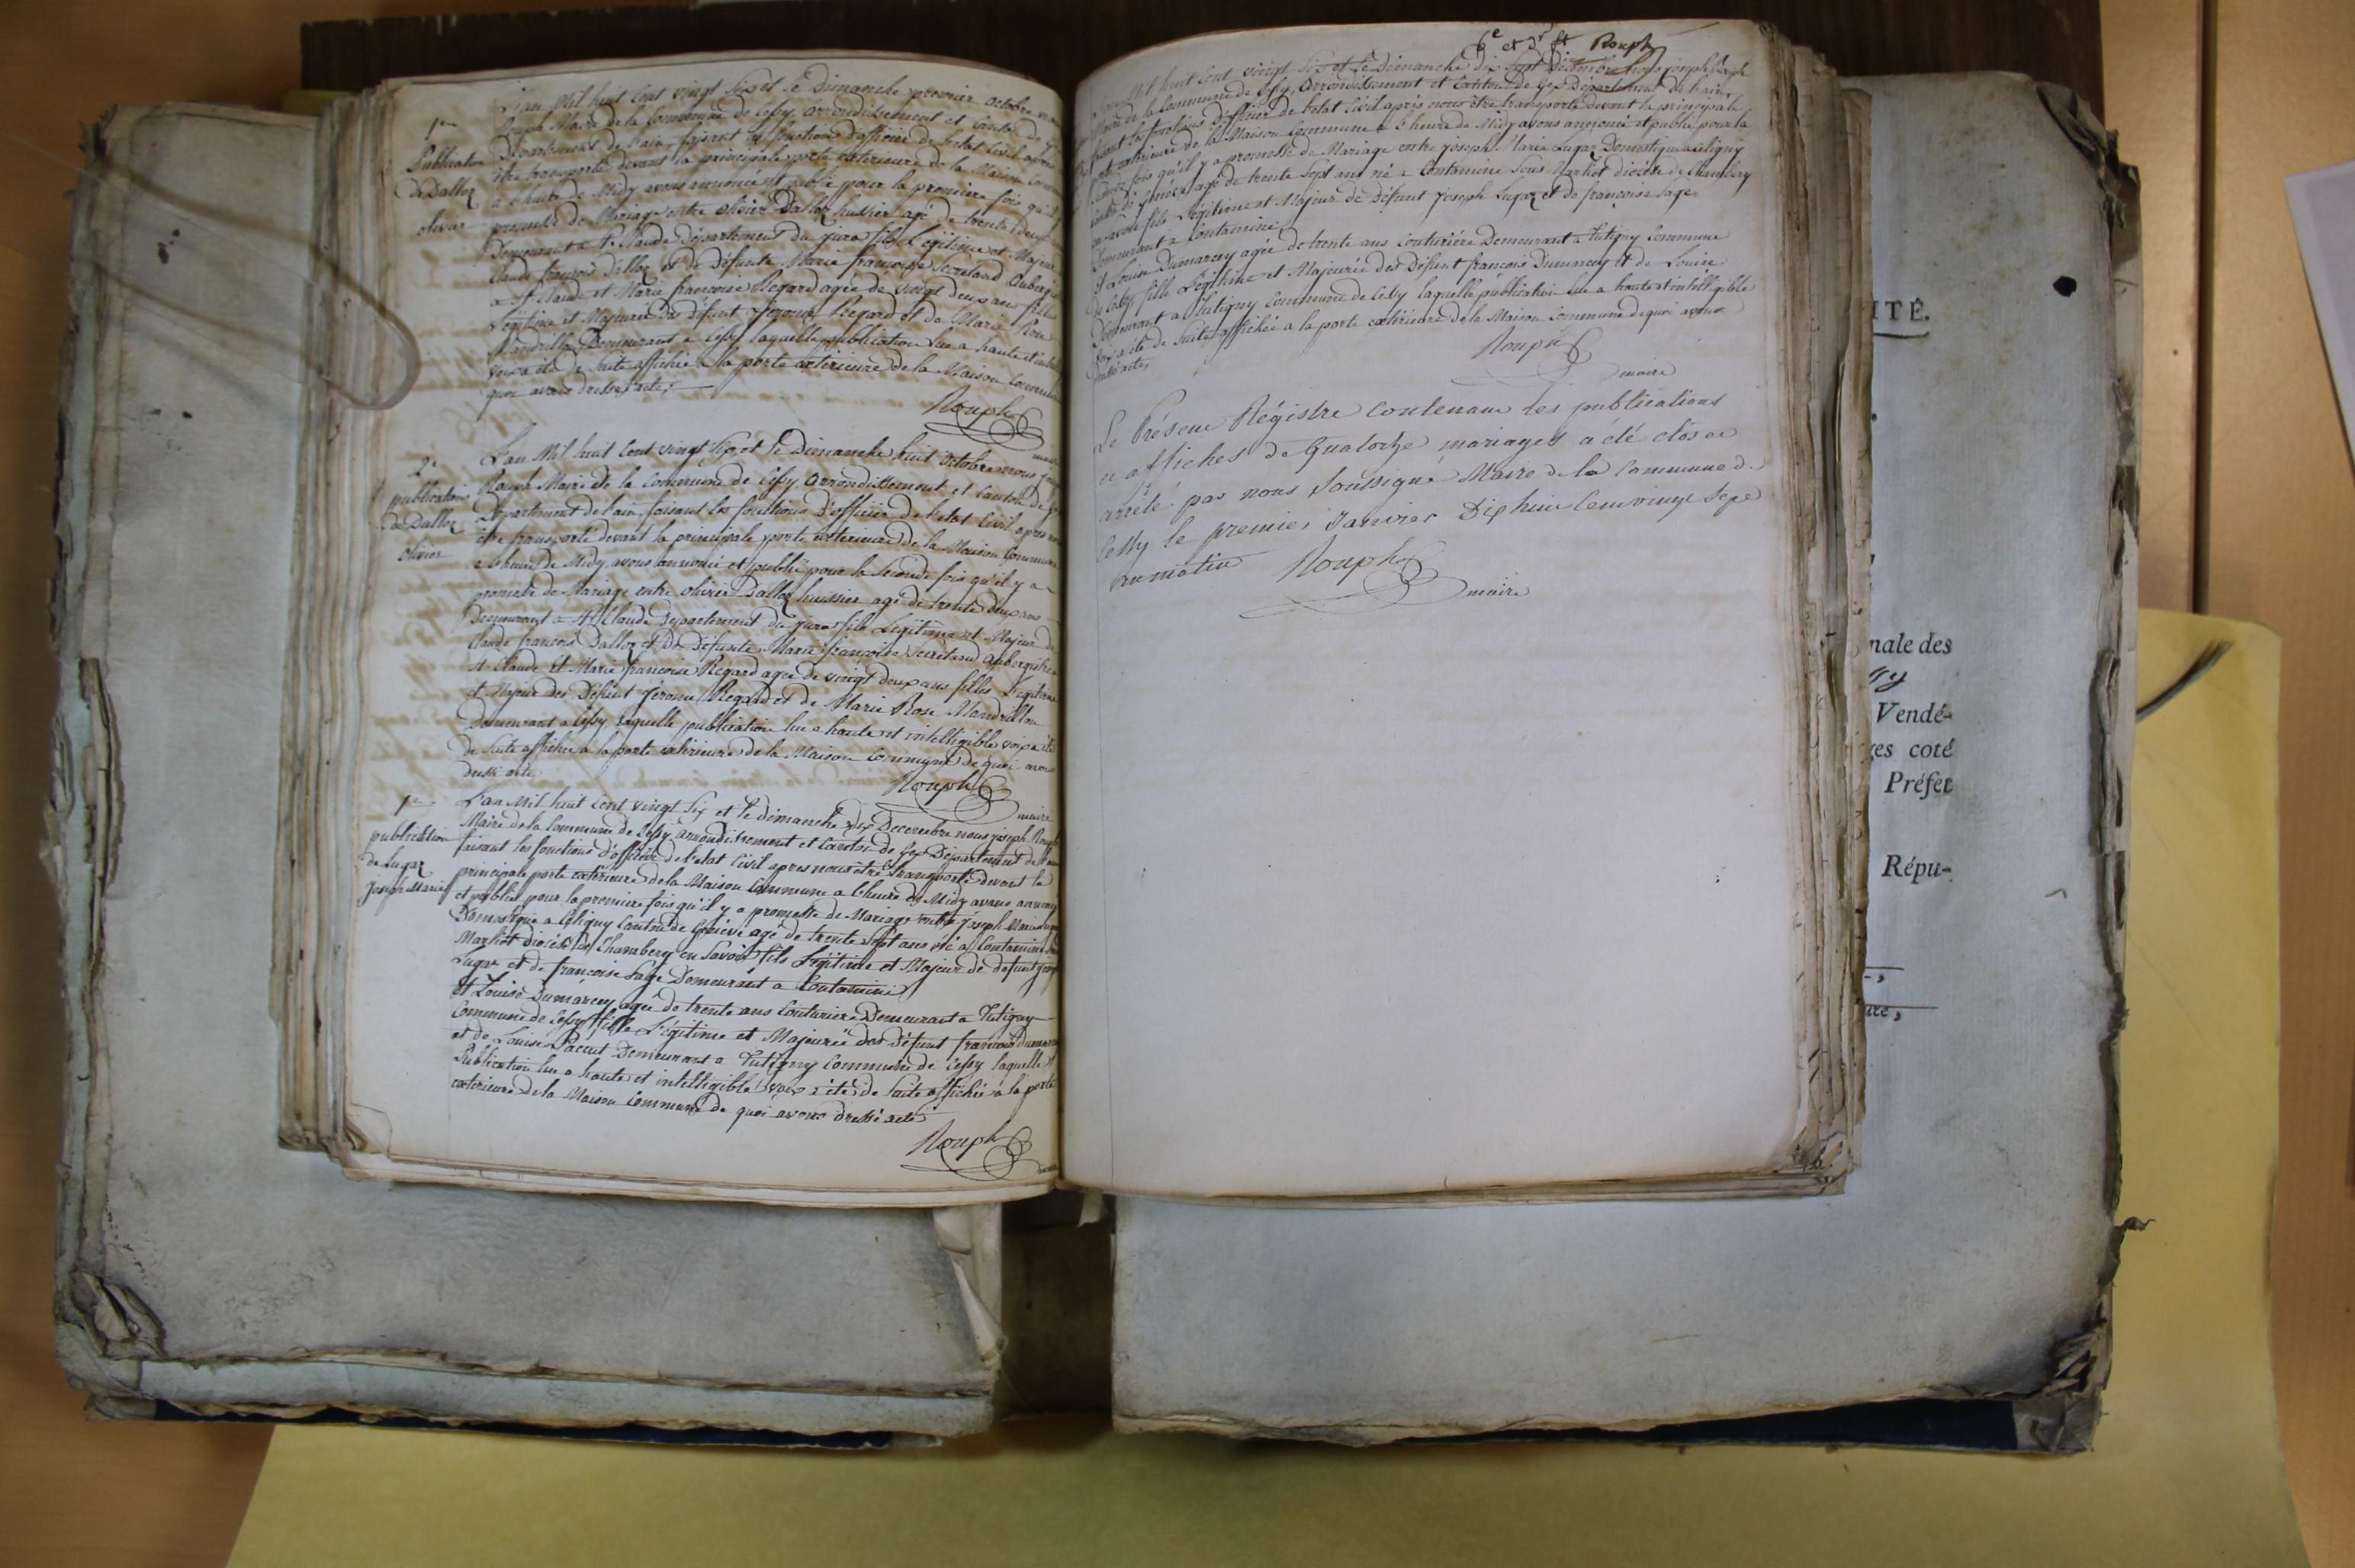 L'an Mil huit Cent vingt Six et le Dimanche premier octobre nous
Rouph Maire de la Commune de Cessy arrondissement et Canton de Gex
1re
Publication
de Dalloz
olivier
Département de l'ain, faisant les fonctions d'officier de l'etat Civil après
être transporté devant la principale porte exterieure de la Maison Commune
a l'heure de Midy avons annoncé et publié pour la première fois qu'il
promesse de Mariage entre olivier Dalloz huissier agé de trente deux
Demeurant a St Claude Département du jura fils Légitime et Majeur
Claude françois Dalloz et de Défunte Marie françoise Secretand Aubergiste
a St Claude et Marie francoise Regard agée de vingt deux ans fille
Légitime et Majeure des défunt Jerome Regard et de Marie Rose
Mandrillon Demeurant a Cessy laquelle publication lue a haute et intel
voix a été de Suite affichée a la porte extérieure de la Maison Commune
quoi avons dressé acte,
Rouph
maire
2e
publication
de Dalloz
olivier
L'an Mil huit Cent vingt Six et le Dimanche huit octobre nous
Rouph Maire de la Commune de Cessy arrondissement et Canton de
Département de l'ain, faisant les fonctions d'officier de l'etat Civil apres
être transporté devant la principale porte exterieure de la Maison Commune
a l'heure de Midy, avons annoncé et publié pour la Seconde fois qu'il y a
promesse de Mariage entre olivier Dalloz huissier agé de trente deux ans
Demeurant a St Claude Département du jura fils Legitime et Majeur de
Claude francois Dalloz et de Défunte Marie françoise Secretand aubergiste
St Claude et Marie francoise Regard agée de vingt deux ans filles Legitime
et Majeur des Défunt Jerome Regard et de Marie Rose Mandrillon
Demeurant a Cessy laquelle publication lue a haute et intelligible voix a été
de Suite affichée a la porte extérieure de la Maison Commune de quoi avons
dressé acte
Rouph
maire
1re
publication
de Lugaz
joseph Marie
L'an Mil huit Cent vingt Six et le dimanche dix Decembre nous joseph Rouph
Maire de la Commune de Cessy arrondissement et Canton de Gex Département de l'ain
faisant les fonctions d'officier de l'etat Civil apres nous être transporté devant la
principale porte extérieure de la Maison Commune a l'heure de Midy avons annoncé
et publié pour la premiere fois qu'il y a promesse de Mariage entre joseph Marie
Domestique a Celigny Canton de Genève agé de trente Sept ans né a Contamine
Marliot diocèse de Chambery en Savoie fils Légitime et Majeur de defunt
Lugaz et de francoise Sage Demeurant a Contamine
et Louise Dumarcey agée de trente ans Couturière Demeurant a Tutigny
Commune de Cessy fille Légitime et Majeurée des Défunt francois
et de Louise Pacut Demeurant a Tutigny Commune de Cessy laquelle
Publication lue a haute et intelligible voix a été de Suite affichée a la porte
exterieure de la Maison Commune de quoi avons dressé acte
Rouph
6e et dr ft Rouph
Mil huit Cent vingt Six et le Dimanche dix Sept Décembre nous joseph Rouph
Maire de la Commune de Cessy, arrondissement et Canton de Gex Département de l'ain,
faisant les fonctions d'officier de l'etat Civil après nous être transporté devant la principale
porte extérieure de la Maison Commune a l'heure de Midy avons annoncé et publié pour la
fois qu'il y a promesse de Mariage entre joseph Marie Lugaz Domestique a Celigny
agé de trente Sept ans né a Contamine Sous Marliot diocèse de Chambery
en Savoie fils Légitime et Majeur de Défunt Joseph Lugaz et de françoise Sage
Demeurant a Contamine,
et Louise Dumarcey agée de trente ans Couturière Demeurant a Tutigny Commune
de Cessy fille Légitime et Majeurée des Défunt françois Dumarcey et de Louise
Demeurant a Tutigny Commune de Cessy laquelle publication lue a haute et intelligible
voix a été de Suite affichée a la porte extérieure de la Maison Commune de quoi avons
acte,
Rouph
maire
Le Présent Régistre Contenant les publications
et affiches de Quatorze mariages a été clos et
arrêté par nous Soussigné Maire de la Commune de
Cessy le premier Janvier Dix huit Cent vingt Sept
au matin Rouph
maire
ITÉ.
nale des
Vendé-
ges coté
Préfet
Répu-